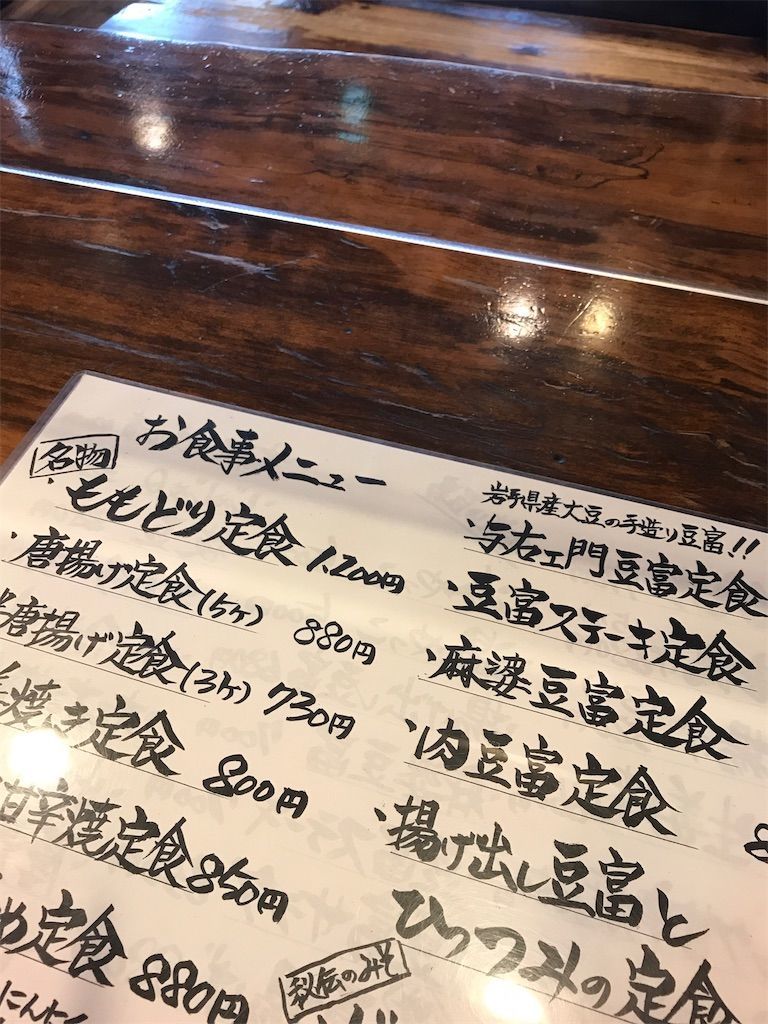 お食事メニュー
名物
・ももどり定食 1,200円
・唐揚げ定食(5ヶ) 880円
唐揚げ定食(3ヶ) 730円
焼き定食 800円
甘辛焼定食 850円
定食 880円
にんにく
岩手県産大豆の手造り豆富!!
・与右ェ門豆富定食
・豆富ステーキ定食
・麻婆豆富定食
・肉豆富定食
・揚げ出し豆富と
ひっつみの定食
秘伝のみそ